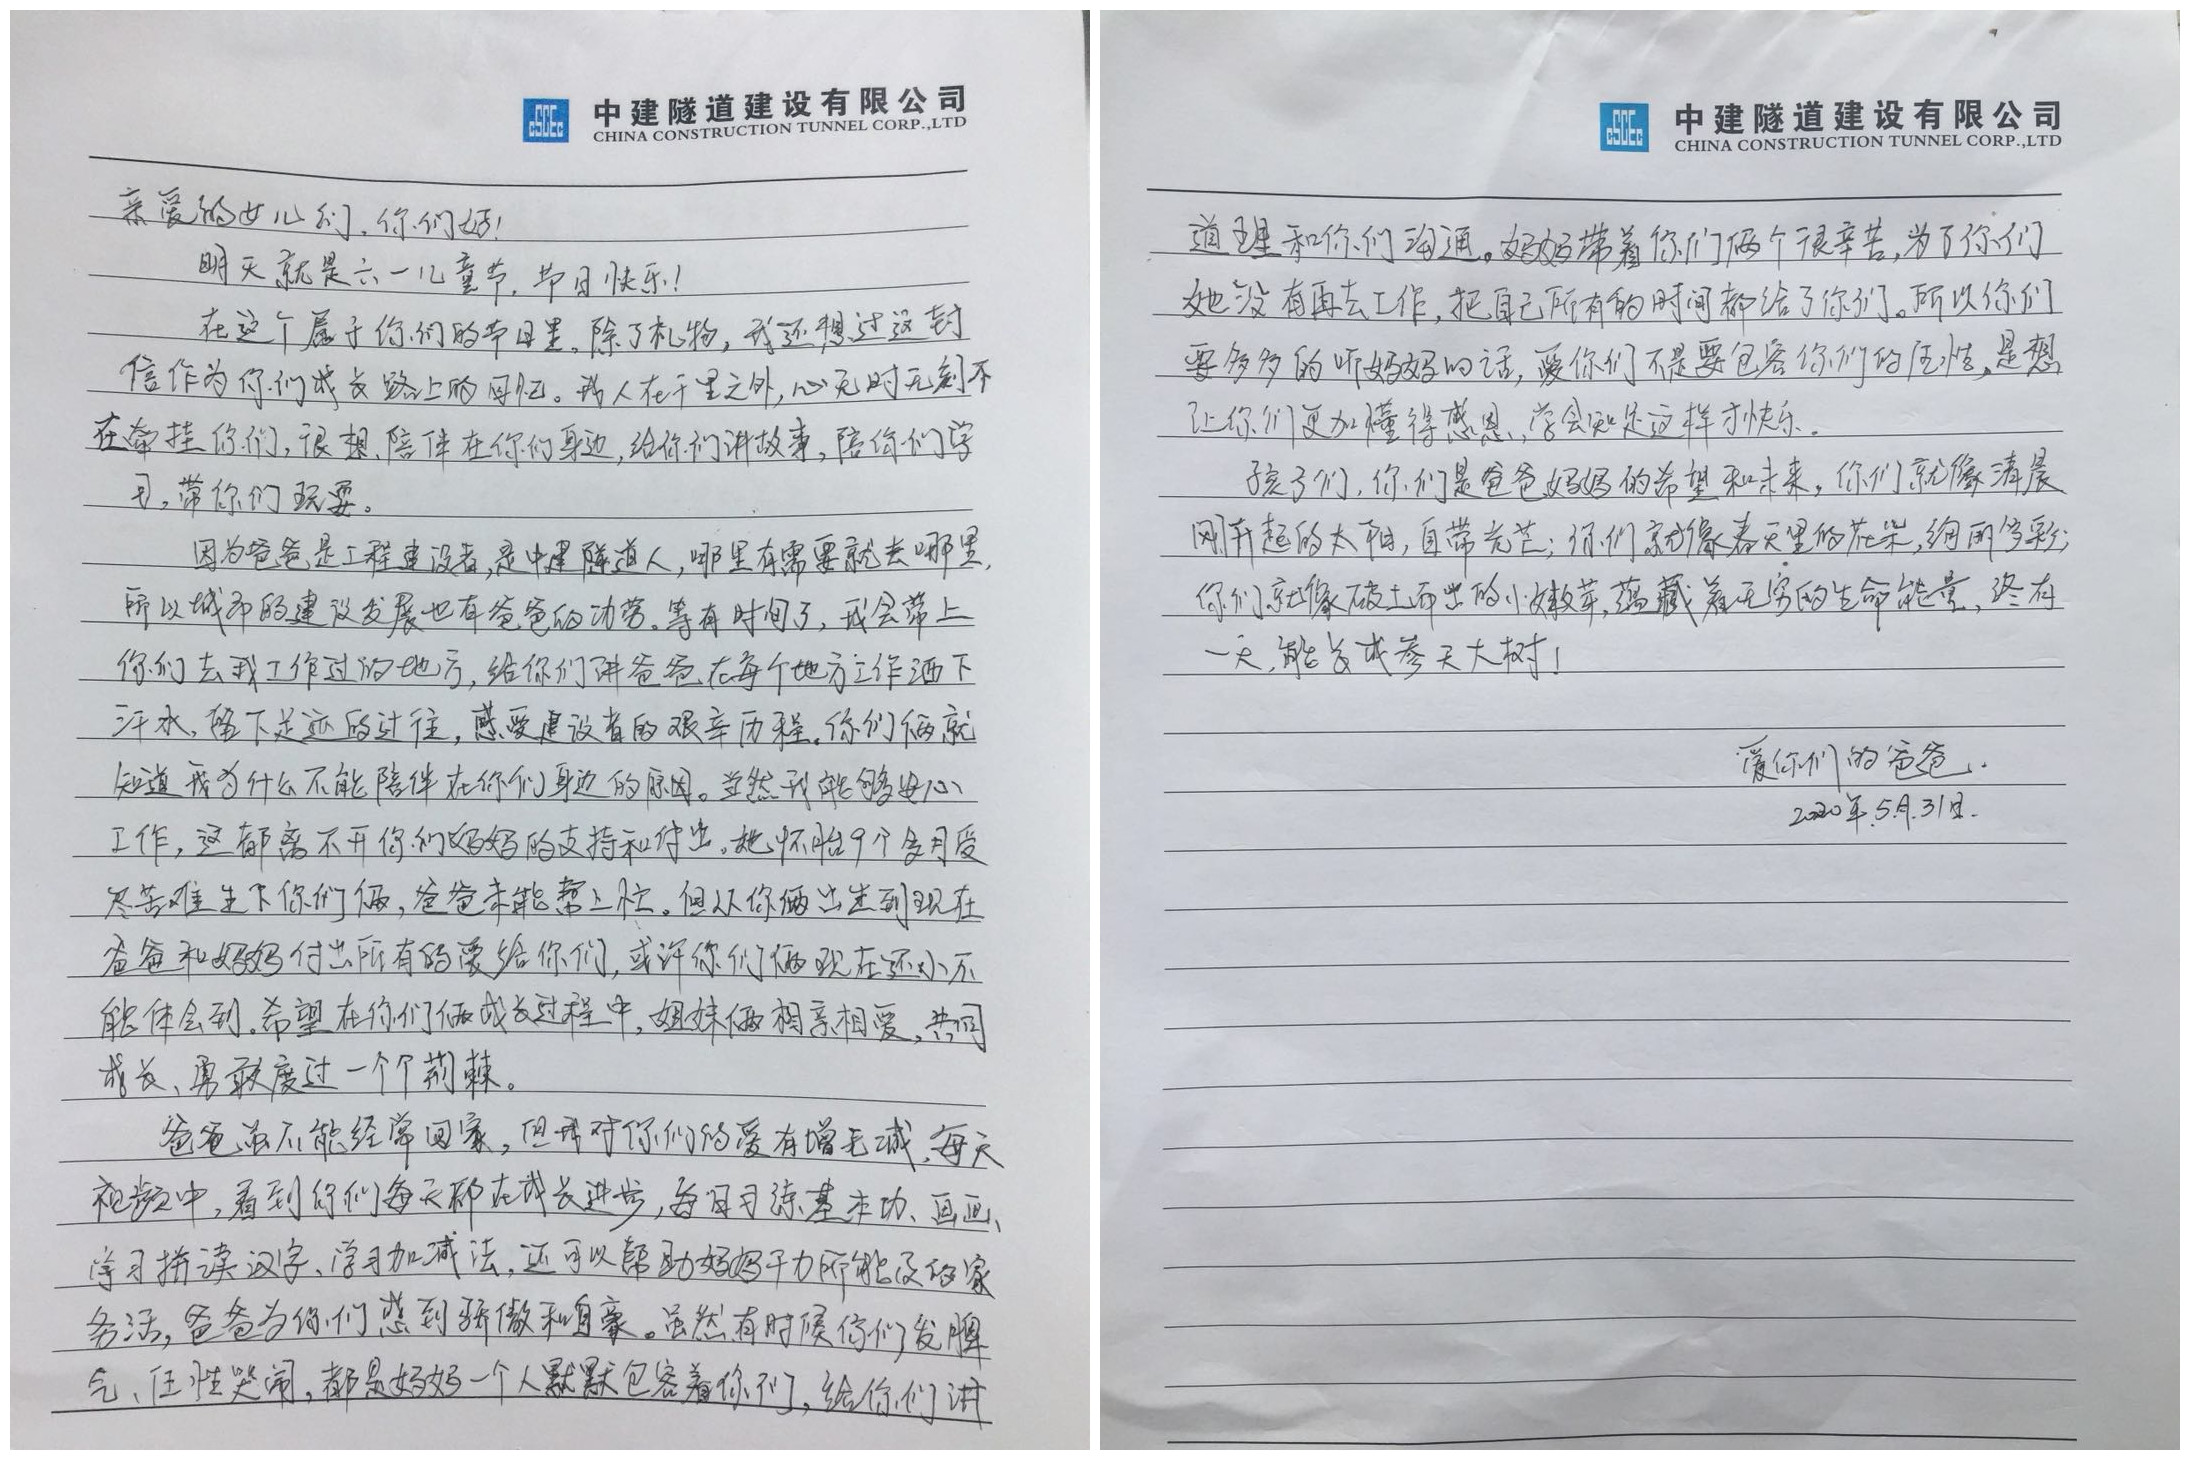 中建隧道建设有限公司
CHINA CONSTRUCTION TUNNEL CORP.,LTD
亲爱的女儿们，你们好！
明天就是六一儿童节，节日快乐！
在这个属于你们的节日里，除了礼物，我还想过这封
信作为你们成长路上的回忆。我人在千里之外，心无时无刻不
在牵挂你们，很想陪伴在你们身边，给你们讲故事，陪你们学
习，带你们玩耍。
因为爸爸是工程建设者，是中建隧道人，哪里有需要就去哪里，
所以城市的建设发展也有爸爸的功劳。等有时间了，我会带上
你们去我工作过的地方，给你们讲爸爸在每个地方工作洒下
汗水，留下足迹的过往，感受建设者的艰辛历程。你们俩就
知道我为什么不能陪伴在你们身边的原因。当然我能够安心
工作，这都离不开你们妈妈的支持和付出。她怀胎9个多月受
尽苦难生下你们俩，爸爸未能帮上忙。但从你俩出生到现在
爸爸和妈妈付出所有的爱给你们，或许你们俩现在还小不
能体会到。希望在你们俩成长过程中，姐妹俩相亲相爱，共同
成长、勇敢度过一个个荆棘。
爸爸虽不能经常回家，但我对你们的爱有增无减，每天
视频中，看到你们每天都在成长进步，每日习练基本功、画画、
学习拼读汉字、学习加减法，还可以帮助妈妈干力所能及的家
务活，爸爸为你们感到骄傲和自豪。虽然有时候你们发脾
气、任性哭闹，都是妈妈一个人默默包容着你们，给你们讲
中建隧道建设有限公司
CHINA CONSTRUCTION TUNNEL CORP.,LTD
道理和你们沟通。妈妈带着你们俩个很辛苦，为了你们
她没有再去工作，把自己所有的时间都给了你们。所以你们
要多多的听妈妈的话，爱你们不是要包容你们的任性，是想
让你们更加懂得感恩，学会知足这样才快乐。
孩子们，你们是爸爸妈妈的希望和未来，你们就像清晨
刚升起的太阳，自带光芒；你们就像春天里的花朵，绚丽多彩；
你们就像破土而出的小嫩芽，蕴藏着无穷的生命能量，终有
一天，能长成参天大树！
爱你们的爸爸.
2020年.5月.31日.